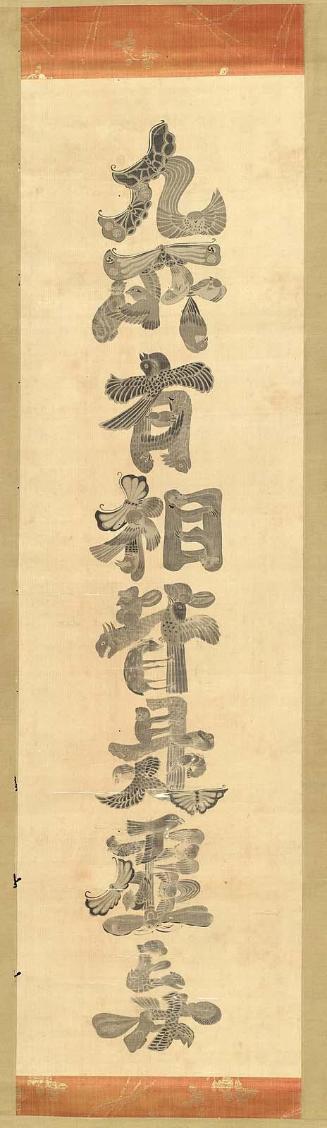 凡所有相皆是虛妄